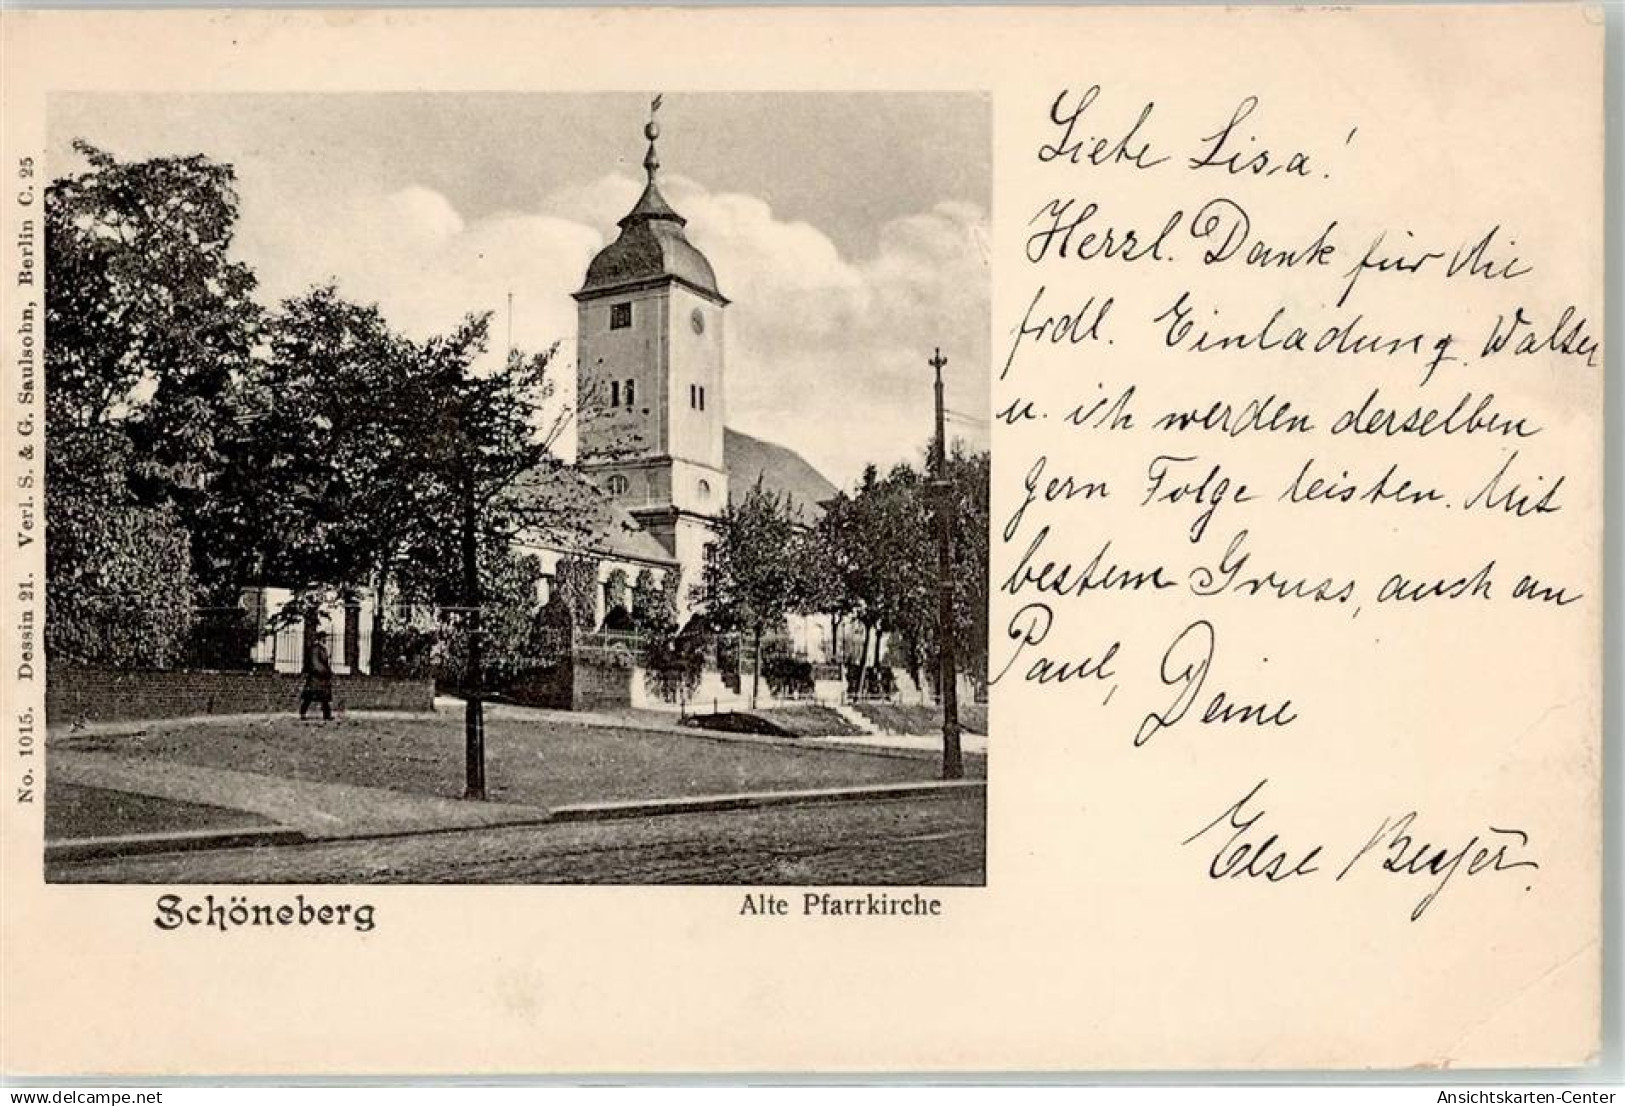 No. 1015. Dessin 21. Verl. S. & G. Saulsohn, Berlin C. 25
Liebe Lisa!
Herzl. Dank für die
frdl. Einladung. Walter
u. ich werden derselben
gern Folge leisten. Mit
bestem Gruss, auch an
Paul, Deine
Else Beyer.
Schöneberg
Alte Pfarrkirche
delcampe.net
Ansichtskarten-Center